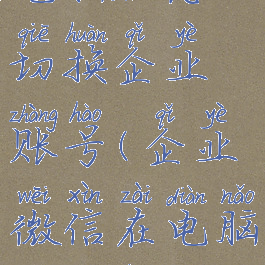 qiē huàn qǐ yè
切换企业
zhàng hào qǐ yè
账号(企业
wēi xìn zài diàn nǎo
微信在电脑